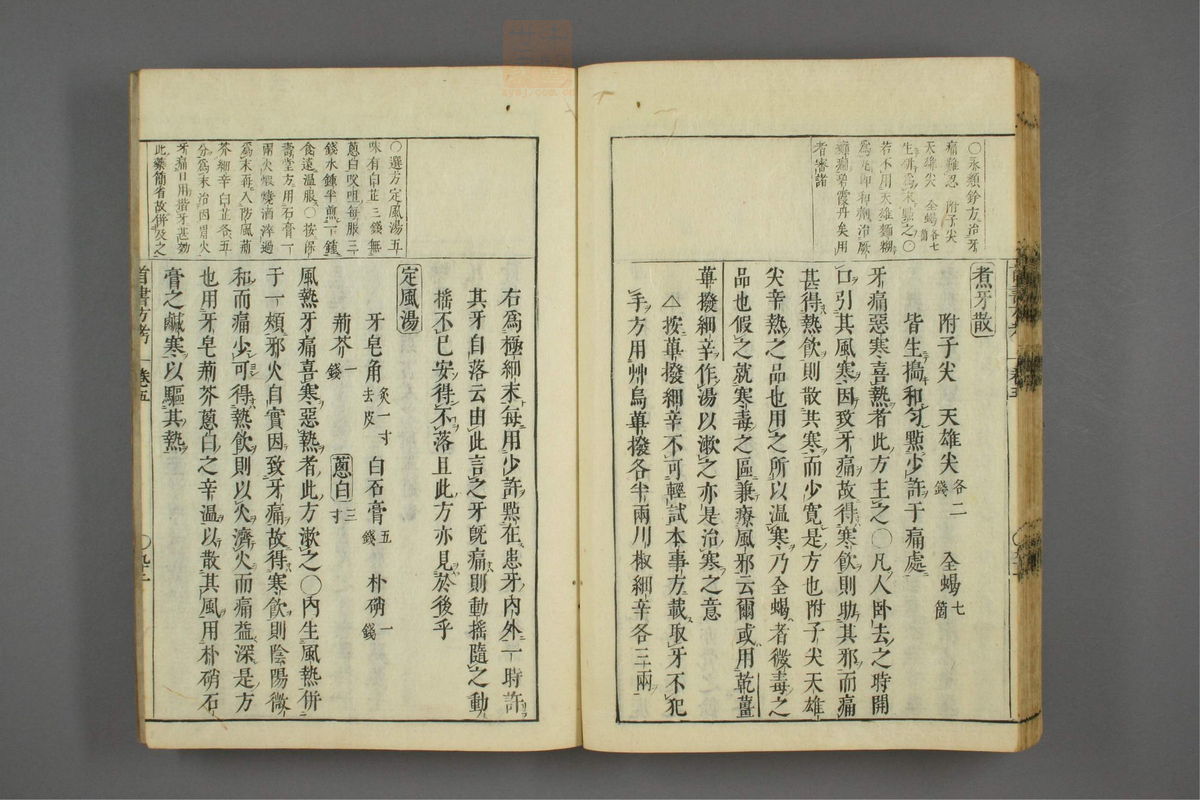 ○永類鈐方治牙
痛難忍 附子尖
天雄尖 全蝎各七箇
生研為末點之○
若不用天雄麵糊
者審諸
煮牙散
附子尖 天雄尖各二錢 全蝎七箇
皆生搗和勻點少許于痛處
牙痛惡寒喜熱者此方主之○凡人卧去之時開
口引其風寒因致牙痛故得寒飲則助其邪而痛
甚得熱飲則散其寒而少寬是方也附子尖天雄
尖辛熱之品也用之所以溫寒乃全蝎者微毒之
品也假之就寒毒之區兼療風邪云爾或用乾薑
蓽撥細辛作湯以漱之亦是治寒之意
△按蓽撥細辛不可輕試本事方載取牙不犯
手方用艸烏蓽撥各半兩川椒細辛各三兩
○選方定風湯五
味有白芷三錢無
蔥白㕮咀每服三
錢水鍾半煎一鍾
食遠溫服○按保
壽堂方用石膏一
兩火煅燒酒淬過
為末再入防風荊
芥細辛白芷各五
分為末治因胃火
牙痛日用揩牙甚効
此藥簡省故併及之
右為極細末每用少許點在患牙內外一時許
其牙自落云由此言之牙既痛則動搖隨之動
搖不已安得不落且此方亦見於後乎
定風湯
牙皂角炙一寸去皮 白石膏五錢 朴硝一錢
荊芥一錢 蔥白三寸
風熱牙痛喜寒惡熱者此方漱之○內生風熱併
于一頰邪火自實因致牙痛故得寒飲則陰陽微
和而痛少可得熱飲則以火濟火而痛益深是方
也用牙皂荊芥蔥白之辛溫以散其風用朴硝石
膏之鹹寒以驅其熱
首書方考 卷五